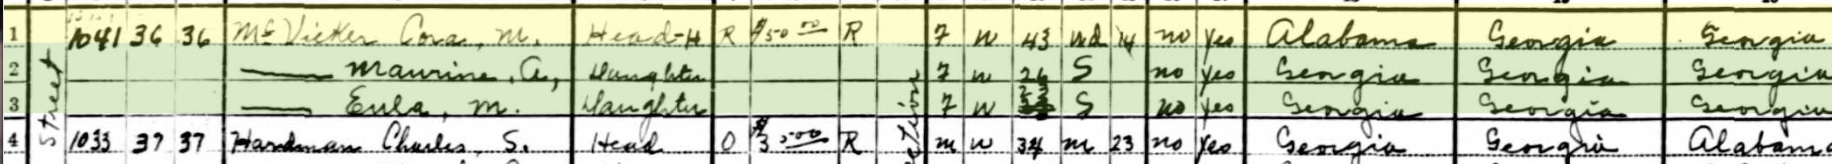 1 1041 36 36 McVicker Cora, M. Head-H R $50 00 R F W 43 Wd 14 no yes Alabama Georgia Georgia
2 —— Maurine, A, Daughter F W 26 S no yes Georgia Georgia Georgia
3 —— Eula, M. Daughter F W S no yes Georgia Georgia Georgia
4 Street 1033 37 37 Hardman Charles, S. Head O R M W 34 M 23 no yes Georgia Georgia Alabama